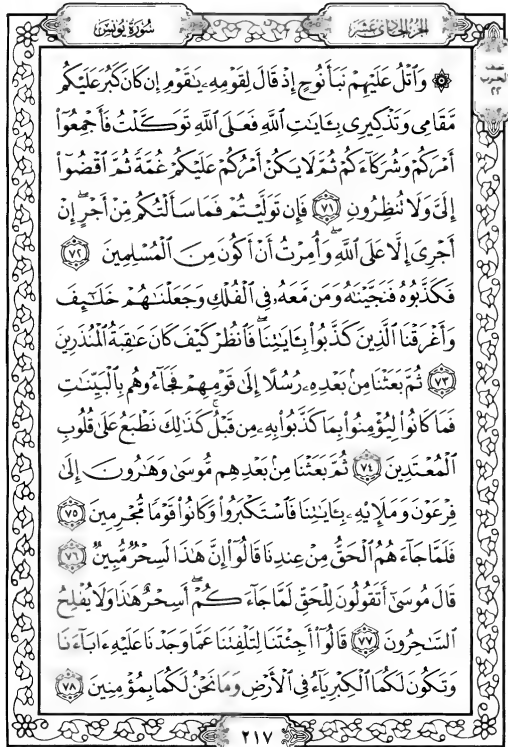 سُورَةُ يُونُسَ
الجُزْءُ الحَادِي عَشَرَ
نصف
الحزب
٢٢
۞ وَٱتْلُ عَلَيْهِمْ نَبَأَ نُوحٍ إِذْ قَالَ لِقَوْمِهِۦ يَٰقَوْمِ إِن كَانَ كَبُرَ عَلَيْكُم
مَّقَامِى وَتَذْكِيرِى بِـَٔايَٰتِ ٱللَّهِ فَعَلَى ٱللَّهِ تَوَكَّلْتُ فَأَجْمِعُوٓا۟
أَمْرَكُمْ وَشُرَكَآءَكُمْ ثُمَّ لَا يَكُنْ أَمْرُكُمْ عَلَيْكُمْ غُمَّةً ثُمَّ ٱقْضُوٓا۟
إِلَىَّ وَلَا تُنظِرُونِ ٧١ فَإِن تَوَلَّيْتُمْ فَمَا سَأَلْتُكُم مِّنْ أَجْرٍ ۖ إِنْ
أَجْرِىَ إِلَّا عَلَى ٱللَّهِ ۖ وَأُمِرْتُ أَنْ أَكُونَ مِنَ ٱلْمُسْلِمِينَ ٧٢
فَكَذَّبُوهُ فَنَجَّيْنَٰهُ وَمَن مَّعَهُۥ فِى ٱلْفُلْكِ وَجَعَلْنَٰهُمْ خَلَٰٓئِفَ
وَأَغْرَقْنَا ٱلَّذِينَ كَذَّبُوا۟ بِـَٔايَٰتِنَا ۖ فَٱنظُرْ كَيْفَ كَانَ عَٰقِبَةُ ٱلْمُنذَرِينَ
٧٣ ثُمَّ بَعَثْنَا مِنۢ بَعْدِهِۦ رُسُلًا إِلَىٰ قَوْمِهِمْ فَجَآءُوهُم بِٱلْبَيِّنَٰتِ
فَمَا كَانُوا۟ لِيُؤْمِنُوا۟ بِمَا كَذَّبُوا۟ بِهِۦ مِن قَبْلُ ۚ كَذَٰلِكَ نَطْبَعُ عَلَىٰ قُلُوبِ
ٱلْمُعْتَدِينَ ٧٤ ثُمَّ بَعَثْنَا مِنۢ بَعْدِهِم مُّوسَىٰ وَهَٰرُونَ إِلَىٰ
فِرْعَوْنَ وَمَلَإِي۟هِۦ بِـَٔايَٰتِنَا فَٱسْتَكْبَرُوا۟ وَكَانُوا۟ قَوْمًا مُّجْرِمِينَ ٧٥
فَلَمَّا جَآءَهُمُ ٱلْحَقُّ مِنْ عِندِنَا قَالُوٓا۟ إِنَّ هَٰذَا لَسِحْرٌ مُّبِينٌ ٧٦
قَالَ مُوسَىٰٓ أَتَقُولُونَ لِلْحَقِّ لَمَّا جَآءَكُمْ ۖ أَسِحْرٌ هَٰذَا وَلَا يُفْلِحُ
ٱلسَّٰحِرُونَ ٧٧ قَالُوٓا۟ أَجِئْتَنَا لِتَلْفِتَنَا عَمَّا وَجَدْنَا عَلَيْهِ ءَابَآءَنَا
وَتَكُونَ لَكُمَا ٱلْكِبْرِيَآءُ فِى ٱلْأَرْضِ وَمَا نَحْنُ لَكُمَا بِمُؤْمِنِينَ ٧٨
٢١٧